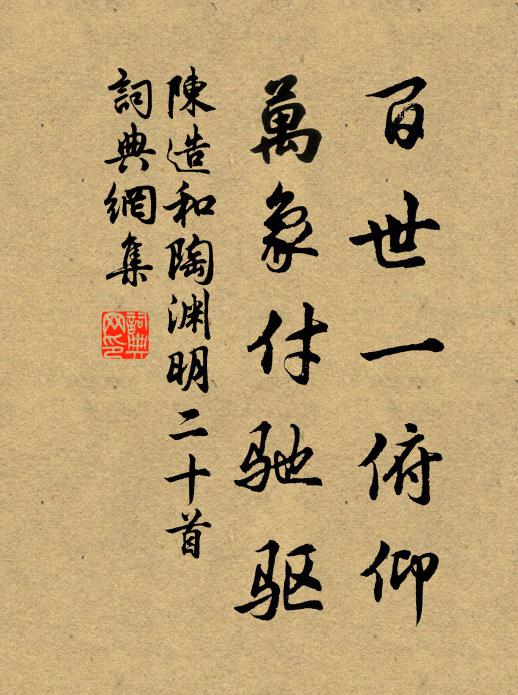 百世一俯仰
萬象付驰驱
陳造和陶渊明二十首
詞典網集
詞典網印